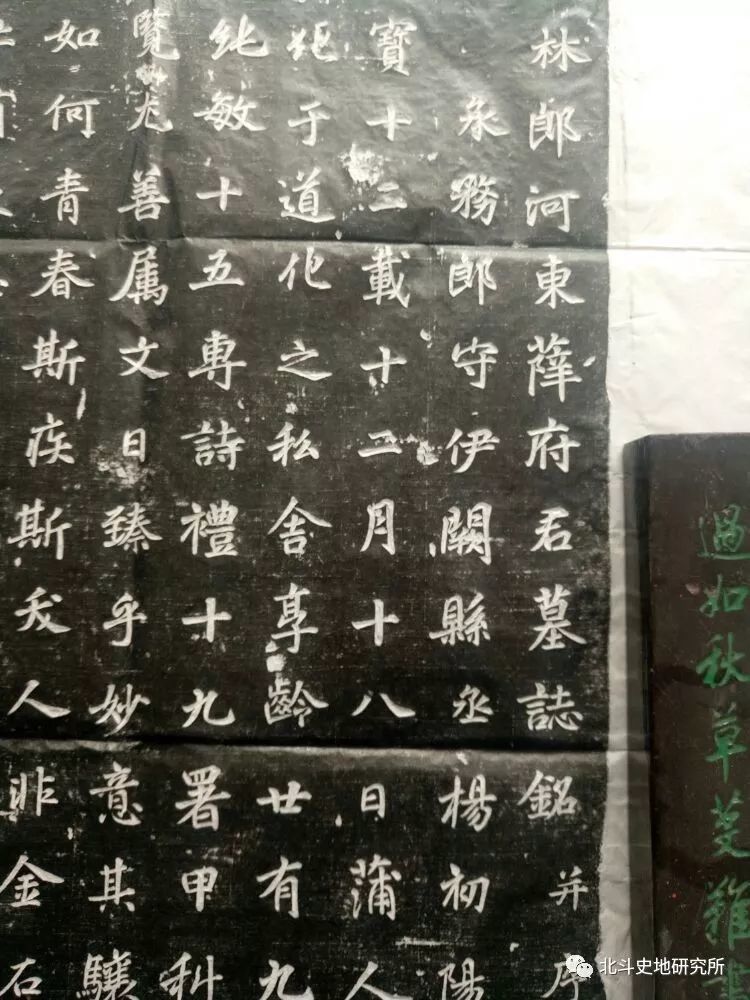 林郎河東薛府君墓誌銘并序
承務郎守伊闕縣丞楊初陽
寶十二載十二月十八日蒲人
于道化之私舍享齡廿有九
純敏十五専詩禮十九署甲科
覽尤善属文日臻乎妙意其驤
如何青春斯疾斯夭人非金石
過如秋草芟難
北斗史地研究所